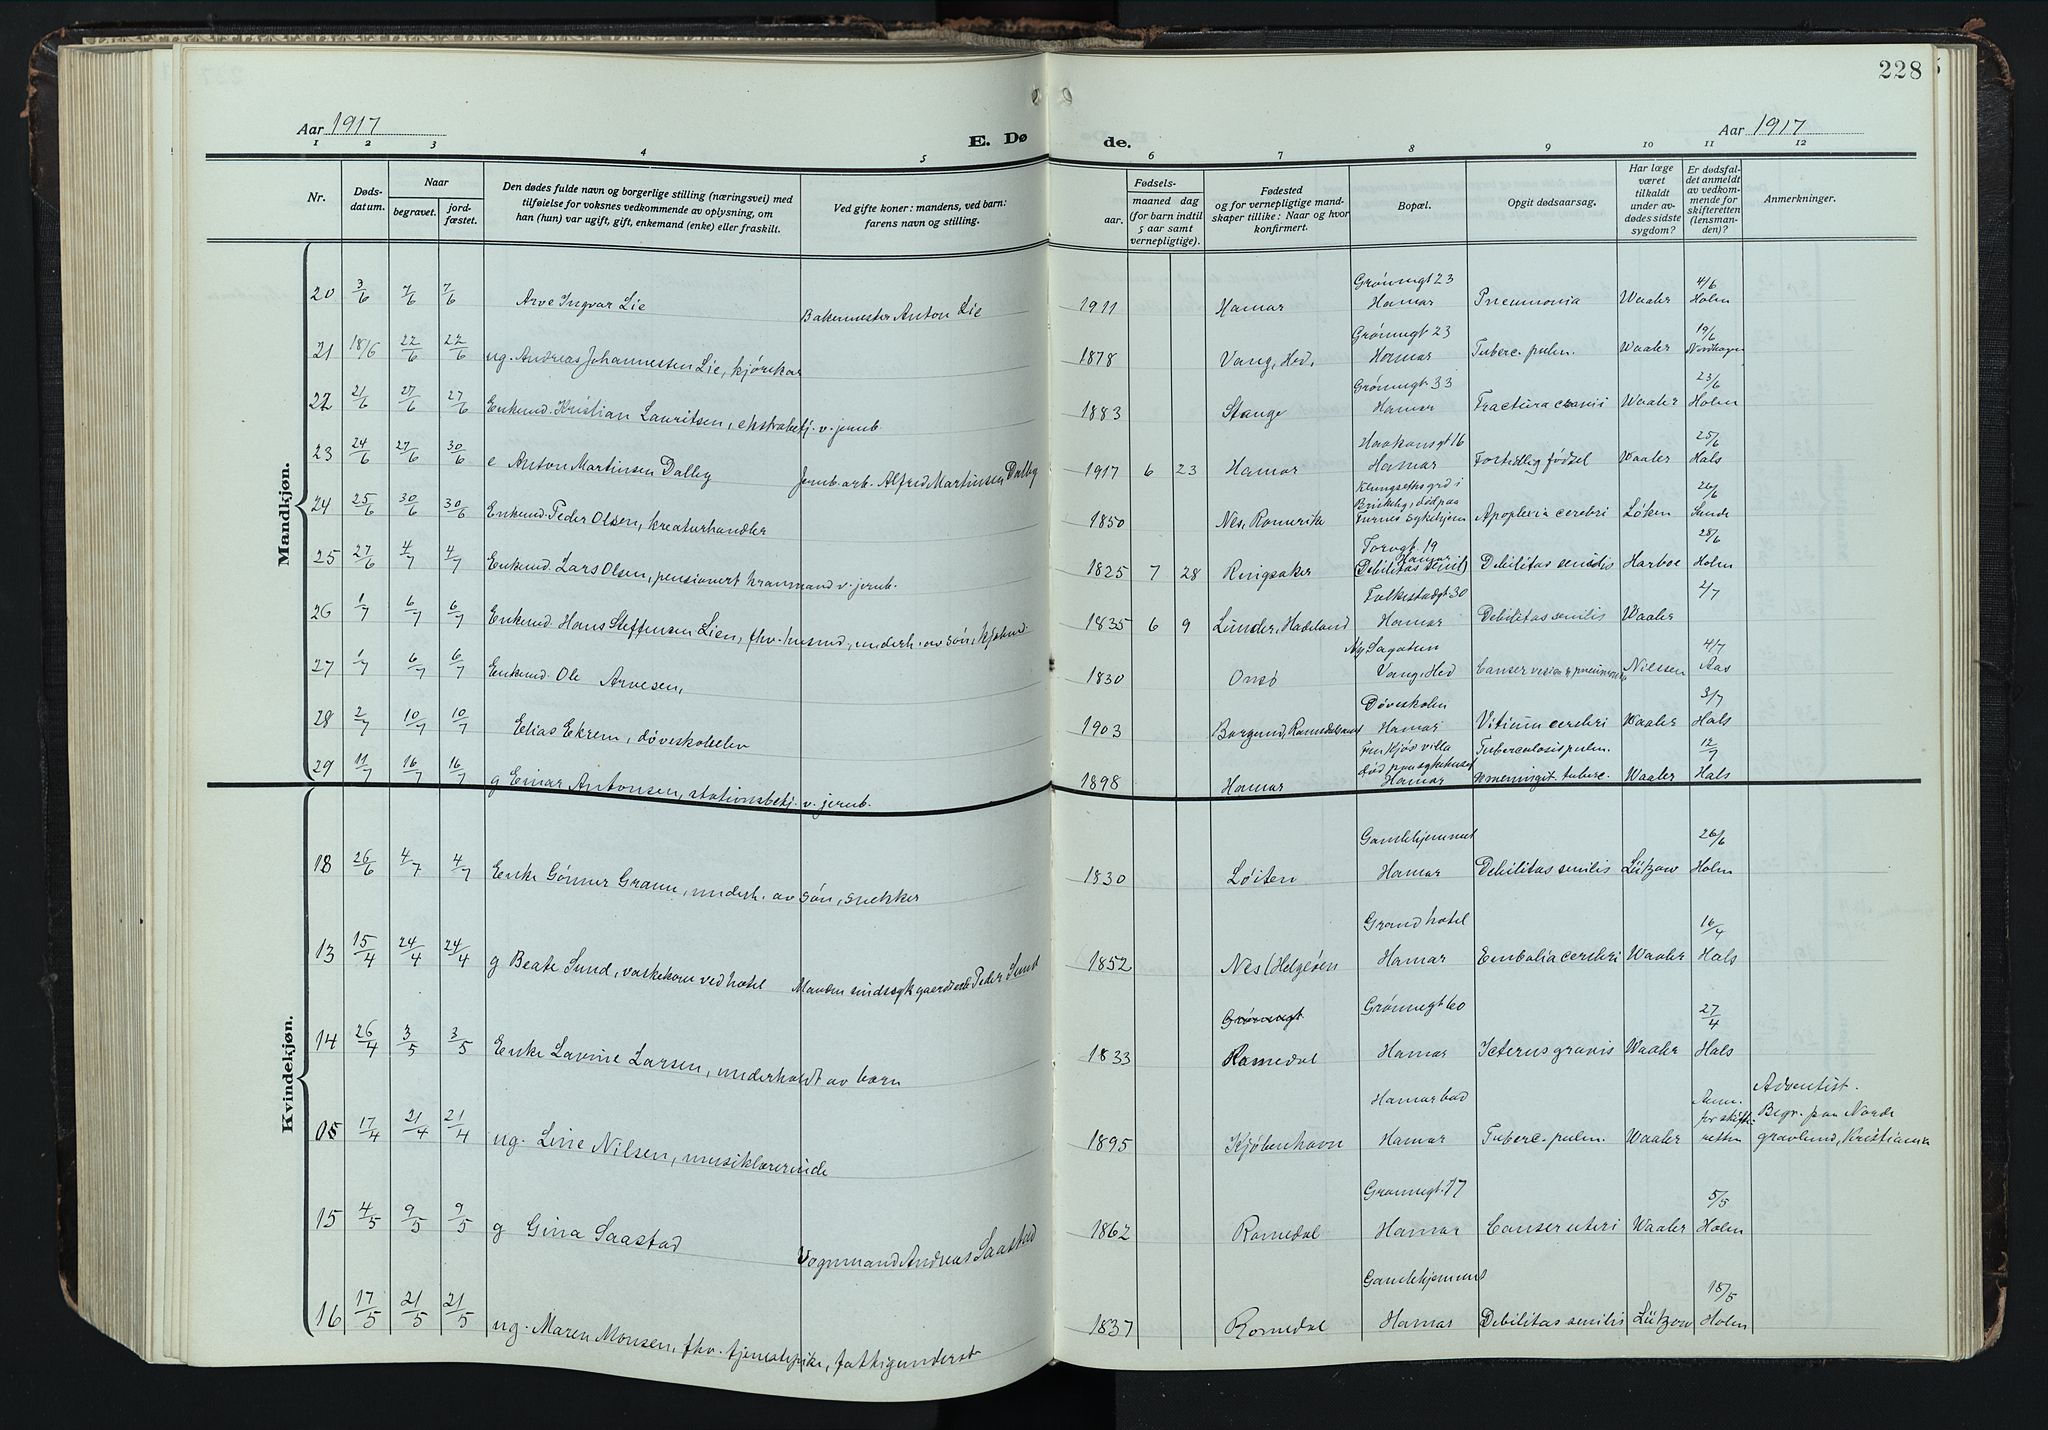 228
Aar 1917
E. Dø
de.
Aar 1917
1 2 3 4 5 6 7 8 9 10 11 12
Nr.
Døds-
datum.
Naar
begravet.
jord-
fæstet.
Den dødes fulde navn og borgerlige stilling (næringsvei) med
tilføielse for voksnes vedkommende av oplysning, om
han (hun) var ugift, gift, enkemand (enke) eller fraskilt.
Ved gifte koner: mandens, ved barn:
farens navn og stilling.
Fødsels-
aar.
maaned dag
(for barn indtil
5 aar samt
vernepligtige).
Fødested
og for vernepligtige mand-
skaper tillike: Naar og hvor
konfirmert.
Bopæl.
Opgit dødsaarsag.
Har læge
været
tilkaldt
under av-
dødes sidste
sygdom?
Er dødsfal-
det anmeldt
av vedkom-
mende for
skifteretten
(lensman-
den)?
Anmerkninger.
Mandkjøn.
20 3/6 7/6 7/6 Arve Ingvar Lie Bakermester Anton Lie 1911 Hamar Grønnegt 23 Hamar Pneumonia Waaler 4/6 Holm
21 18/6 22/6 22/6 ug. Andreas Johannessen Lie, kjørekar 1878 Vang, Hed. Grønnegt 23 Hamar Tuberc. pulm. Waaler 19/6 Nordhagen
22 21/6 27/6 27/6 Enkemd. Kristian Lauritsen, ekstrabetj. v. jernb. 1883 Stange Grønnegt. 33 Hamar Fractura cranii Waaler 23/6 Holm
23 24/6 27/6 30/6 e Anton Martinsen Dalby Jernb.arb. Alfred Martinsen Dalby 1917 6 23 Hamar Haakonsgt 16 Hamar Fortidlig fødsel Waaler 25/6 Hals
24 25/6 30/6 30/6 Enkemd. Peder Olsen, kreaturhandler 1850 Nes, Romerike død paa Furnes sykehjem Apoplexia cerebri Løken 26/6 Sunde
25 27/6 4/7 4/7 Enkemd. Lars Olsen, pensionert kranmand v. jernb. 1825 7 28 Ringsaker Torvgt. 19 Hamar (Debilitas senil) Debilitas senilis Harboe 28/6 Holm
26 1/7 6/7 6/7 Enkemd Hans Steffensen Lien, fhv. husmd, underh. av søn, 1835 6 9 Lunder, Hadeland Falkestadgt 30 Hamar Debilitas senilis Waaler 2/7
27 1/7 6/7 6/7 Enkemd. Ole Arvesen, 1830 Onsø Ny Sagatun Vang, Hed Canser Nilssen 4/7 Aas
28 2/7 10/7 10/7 Elias Ekrem, døveskoleelev 1903 Borgund, Romsdalsamt Døveskolen Hamar Vitium cerebri Waaler 3/7 Hals
29 11/7 16/7 16/7 g Einar Antonsen, stationsbetj. v. jernb. 1898 Hamar villa død paa sykehuset Hamar Tuberculosis pulm. meningit. tuberc. Waaler 12/7 Hals
Kvindekjøn.
18 26/6 4/7 4/7 Enke Gønner Gran, underh. av søn, snekker 1830 Løiten Gamlehjemmet Hamar Debilitas senilis Lützow 26/6 Holm
13 15/4 24/4 24/4 g Beate Sund, vaskekone ved hotel Manden sindssyk gaardeier Peder Sund 1852 Nes (Helgøen Grand hotel Hamar Embolia cerebri Waaler 16/4 Hals
14 26/4 3/5 3/5 Enke Lavine Larsen, underholdt av barn 1833 Grønnegt Romedal Grønnegt 60 Hamar Icterus gravis Waaler 27/4 Hals
05 17/4 21/4 21/4 ug. Line Nilsen, musiklærerinde 1895 Kjøbenhavn Hamar bad Hamar Tuberc. pulm. Waaler Anm. for skifte- retten Adventist. Begr. paa Nordre gravlund, Kristiania
15 4/5 9/5 9/5 g Gina Saastad Vognmand Andreas Saastad 1862 Romedal Grønnegt. 77 Hamar Canser uteri Waaler 5/5 Holm
16 17/5 21/5 21/5 ug. Maren Monsen, fhv. tjenestepike, fattigunderst 1837 Romedal Gamlehjemmet Hamar Debilitas senilis Lützow 18/5 Holm